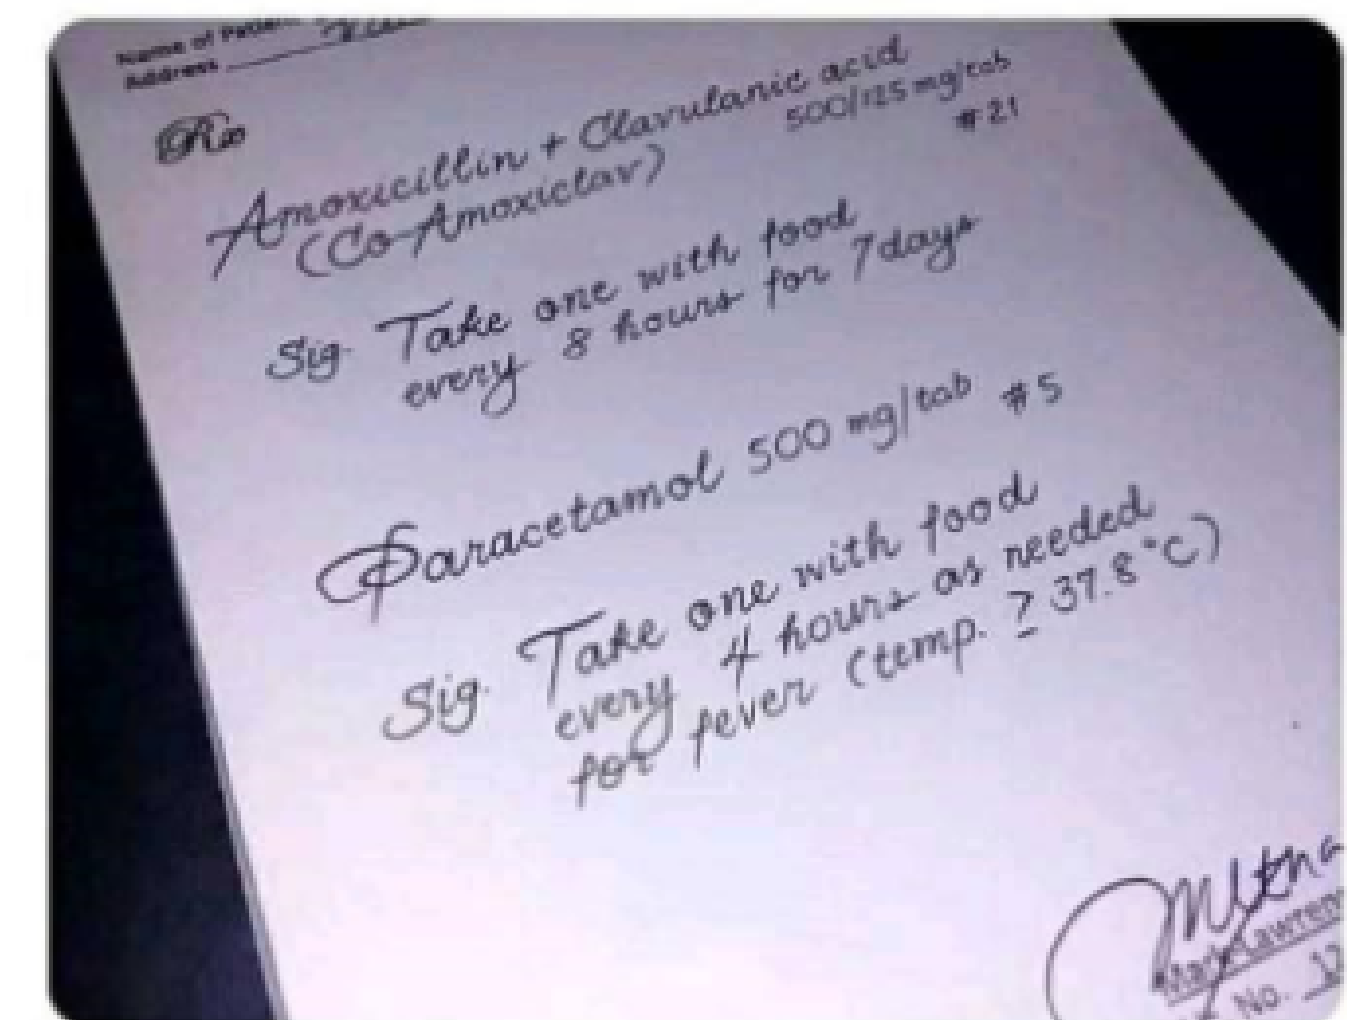 Name of Patient
Address
Rx
Amoxicillin + Clavulanic acid
500/125 mg/tab
(Co-Amoxiclav)
#21
Sig. Take one with food
every 8 hours for 7 days
Paracetamol 500 mg/tab #5
Sig. Take one with food
every 4 hours as needed
for fever (temp. ≥ 37.8 °C)
Mark Lawren
No.